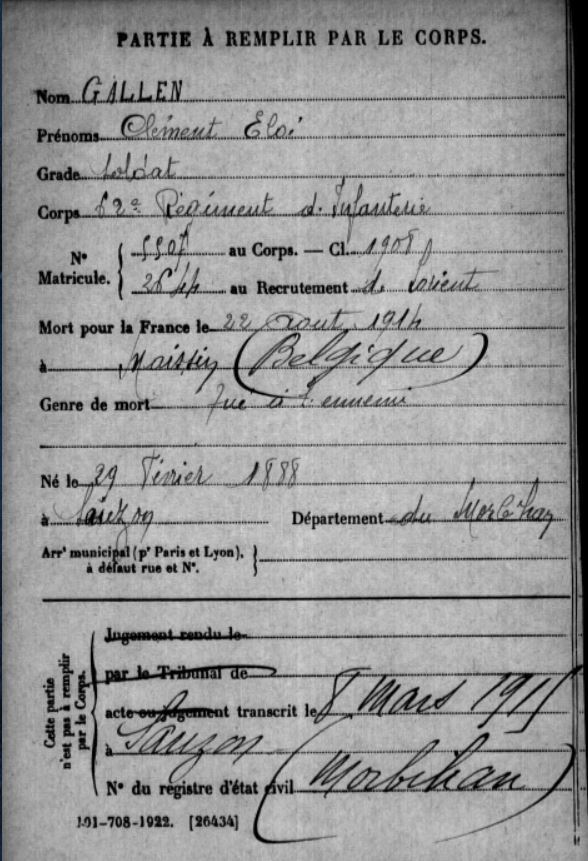 PARTIE À REMPLIR PAR LE CORPS.
Nom GALLEN
Prénoms Clément Eloi
Grade Soldat
Corps 62e Régiment d'Infanterie
N° Matricule. { 5507 au Corps. — Cl. 1908
2644 au Recrutement de Lorient
Mort pour la France le 22 août 1914
à Maissin (Belgique)
Genre de mort Tué à l'ennemi
Né le 29 Février 1888
à Sauzon Département du Morbihan
Arrt municipal (pr Paris et Lyon), }
à défaut rue et N°.
Cette partie n'est pas à remplir par le Corps.
Jugement rendu le
par le Tribunal de
acte ou jugement transcrit le 8 Mars 1915
à Sauzon
N° du registre d'état civil (Morbihan)
101-708-1922. [26434]